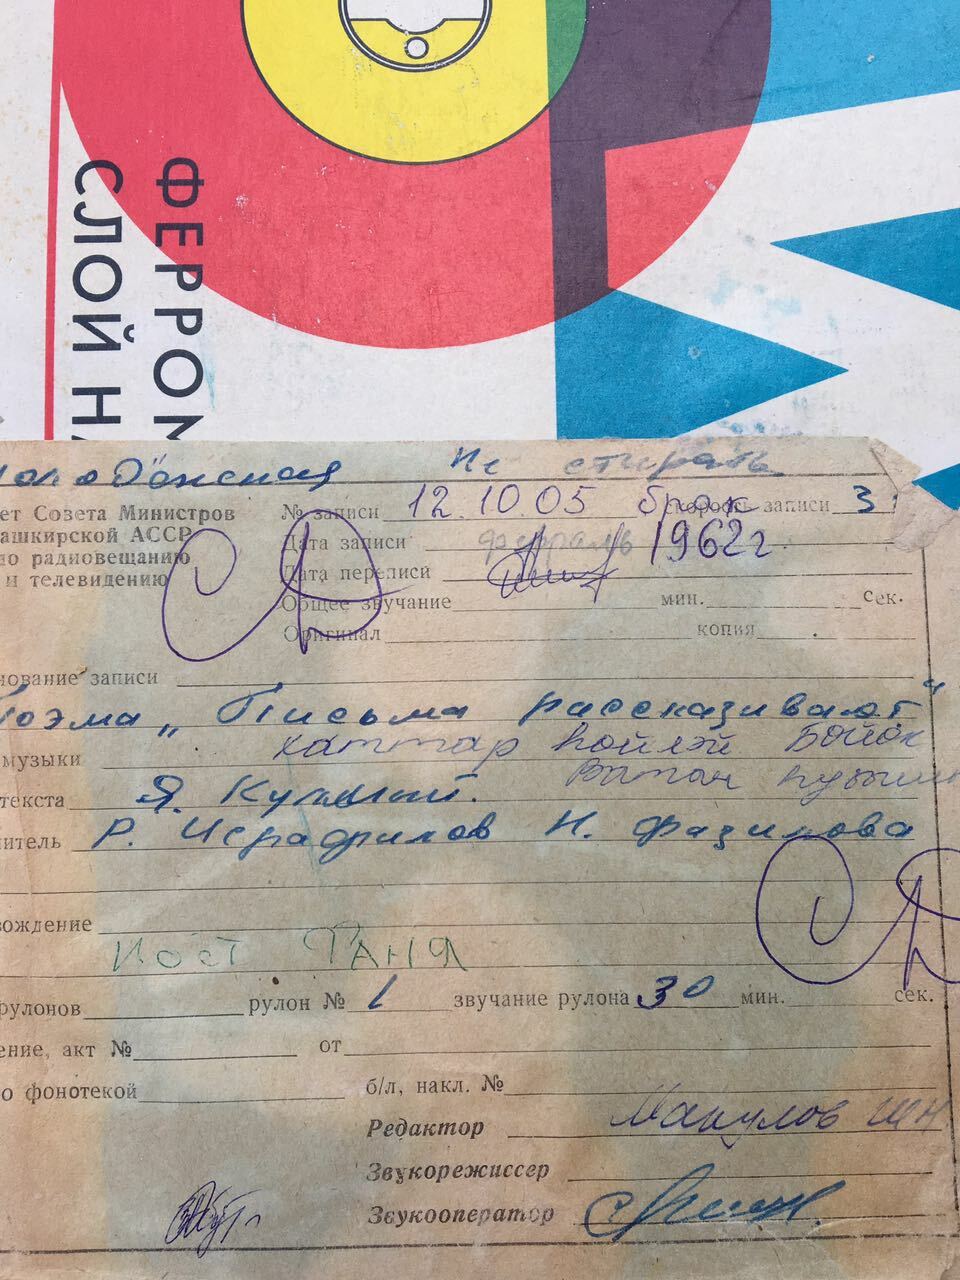 ФЕРРОМ
СЛОЙ НА
Не стирать
ет Совета Министров
ашкирской АССР
по радиовещанию
и телевидению
№ записи 12.10.05 брак скорость записи 3
Дата записи февраль 1962 г.
Дата переписи
Общее звучание мин. сек.
Оригинал копия
нование записи
Поэма „Письма рассказывают"
музыки хаттар һөйләй
текста Я. Кулмый.
итель Р. Исрафилов Н. Фазилова
вождение
Пост Таня
рулонов рулон № 1 звучание рулона 30 мин. сек.
ение, акт № от
о фонотекой б/л, накл. №
Редактор
Звукорежиссер
Звукооператор